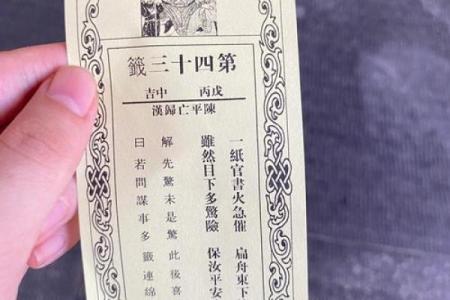 第四十三籤
丙戌 中吉
陳平亡歸漢
一紙官書火急催 扁舟東下
雖然目下多驚險 保汝平安
解 先驚未是驚 此後喜
曰 若問謀事多 連綿